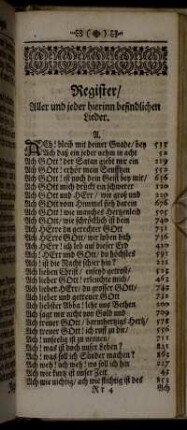 Register/
Aller und jeder hierinn befindlichen
Lieder.
A.
ACh! bleib mit deiner Gnade/ bey 515
Ach daß ein jeder nehm in acht 50
Ach GOtt! der Satan giebt mir ein 119
Ach GOtt! erhör mein Seufftzen 552
Ach GOtt! ist noch dein Geist bey mir/ 656
Ach GOtt mich drückt ein schwerer 220
Ach GOtt und HErr/ wie groß und
Ach GOtt vom Himmel sieh darein 268
Ach GOtt/ wie manches Hertzenleid 503
Ach GOtt/ wie schröcklich ist dein 740
Ach HErr du gerechter GOtt
Ach HErr GOtt/ wir loben dich 796
Ach HErr! ich leb auf dieser Erd 320
Ach! HErr und GOtt/ du höchstes 191
Ach! ist die Nacht schier hin?
Ach lieben Christ/ enseyd getrost/
Ach lieber GOtt/ erleuchte mich/
Ach lieber HErr/ du grosser GOtt/ 742
Ach lieber und getreuer GOtt
Ach liebster Abba! lehr uns bethen
Ach sagt mir nicht von Gold und 709
Ach treuer GOtt/ barmhertzigs Hertz/
Ach treuer GOtt! ich ruff zu dir/ 550
Ach! unselig ist zu nennen/
Ach! was ist doch unser Leben? 821
Ach! was soll ich Sünder machen? 885
Ach weh! ach weh/ wo soll ich hin
Ach wie kurtz ist unser Zeit
Ach wie nichtig/ ach wie flüchtig ist des 852
Rr 4 Ach